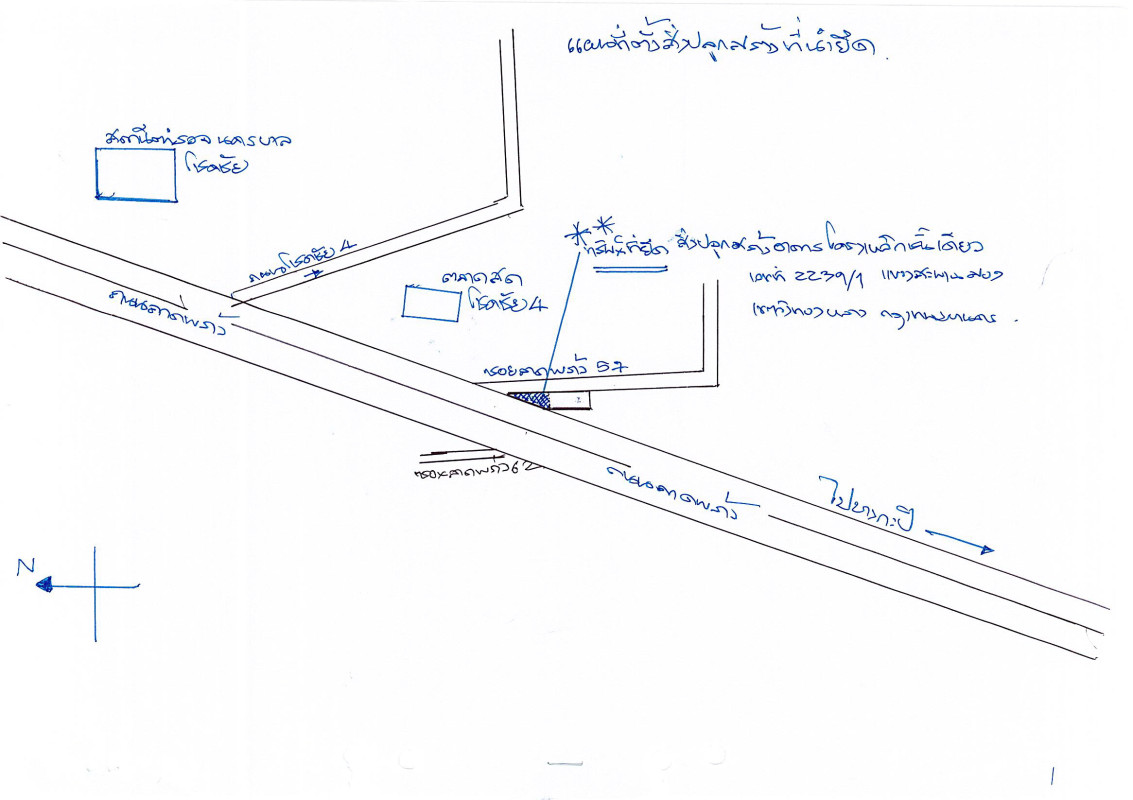 แผนที่ตั้งสิ่งปลูกสร้างที่นำยึด.
สถานีตำรวจนครบาล
โชคชัย
ทรัพย์ที่ยึด สิ่งปลูกสร้างอาคารโครงเหล็กชั้นเดียว
เลขที่ 2239/1 แขวงสะพานสอง
เขตวังทองหลาง กรุงเทพมหานคร.
ถนนโชคชัย 4
ตลาดสด
โชคชัย 4
ถนนลาดพร้าว
ซอยลาดพร้าว 57
ซอยลาดพร้าว 62
ถนนลาดพร้าว
ไปบางกะปิ
N
1